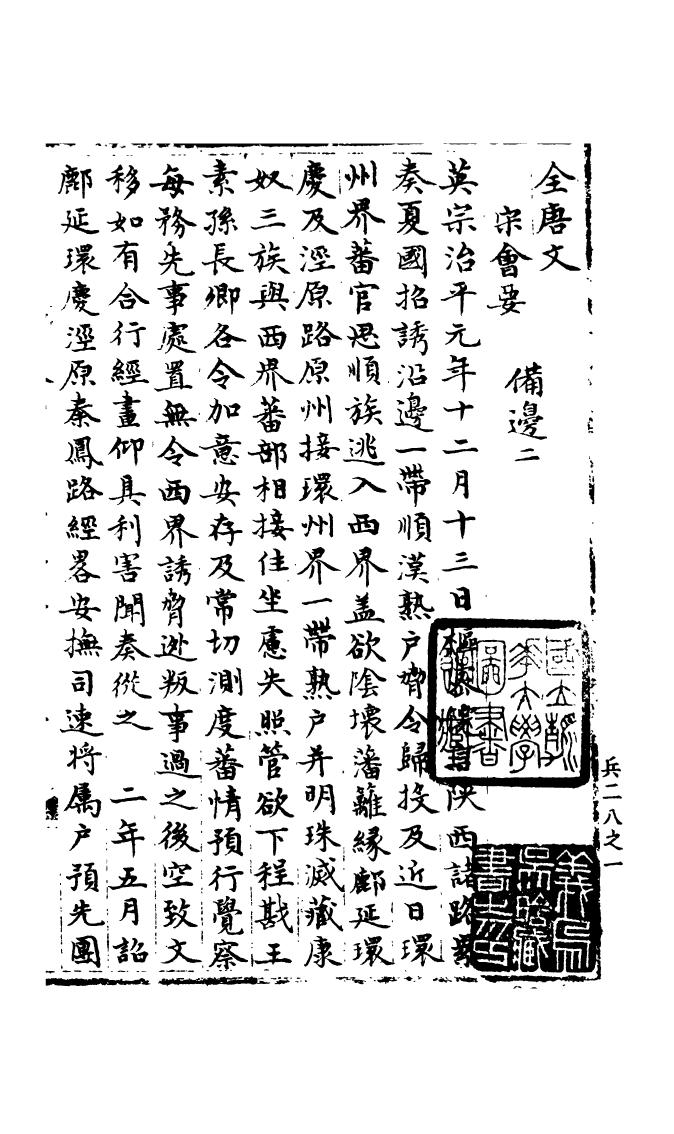 全唐文
宋會要
備邊二
英宗治平元年十二月十三日樞密院言陝西諸路累
奏夏國招誘沿邊一帶順漢熟戶脅令歸投及近日環
州界蕃官思順族逃入西界盖欲陰壞藩籬緣鄜延環
慶及涇原路原州接環州界一帶熟戶并明珠滅藏康
奴三族與西界蕃部相接住坐慮失照管欲下程戡王
素孫長卿各令加意安存及常切測度蕃情預行覺察
每務先事處置無令西界誘脅迯叛事過之後空致文
移如有合行經畫仰具利害聞奏從之　二年五月詔
鄜延環慶涇原秦鳳路經畧安撫司速將属戶預先團
國立清華大學圖書館藏
義烏吳晗藏書之印
兵二八之一